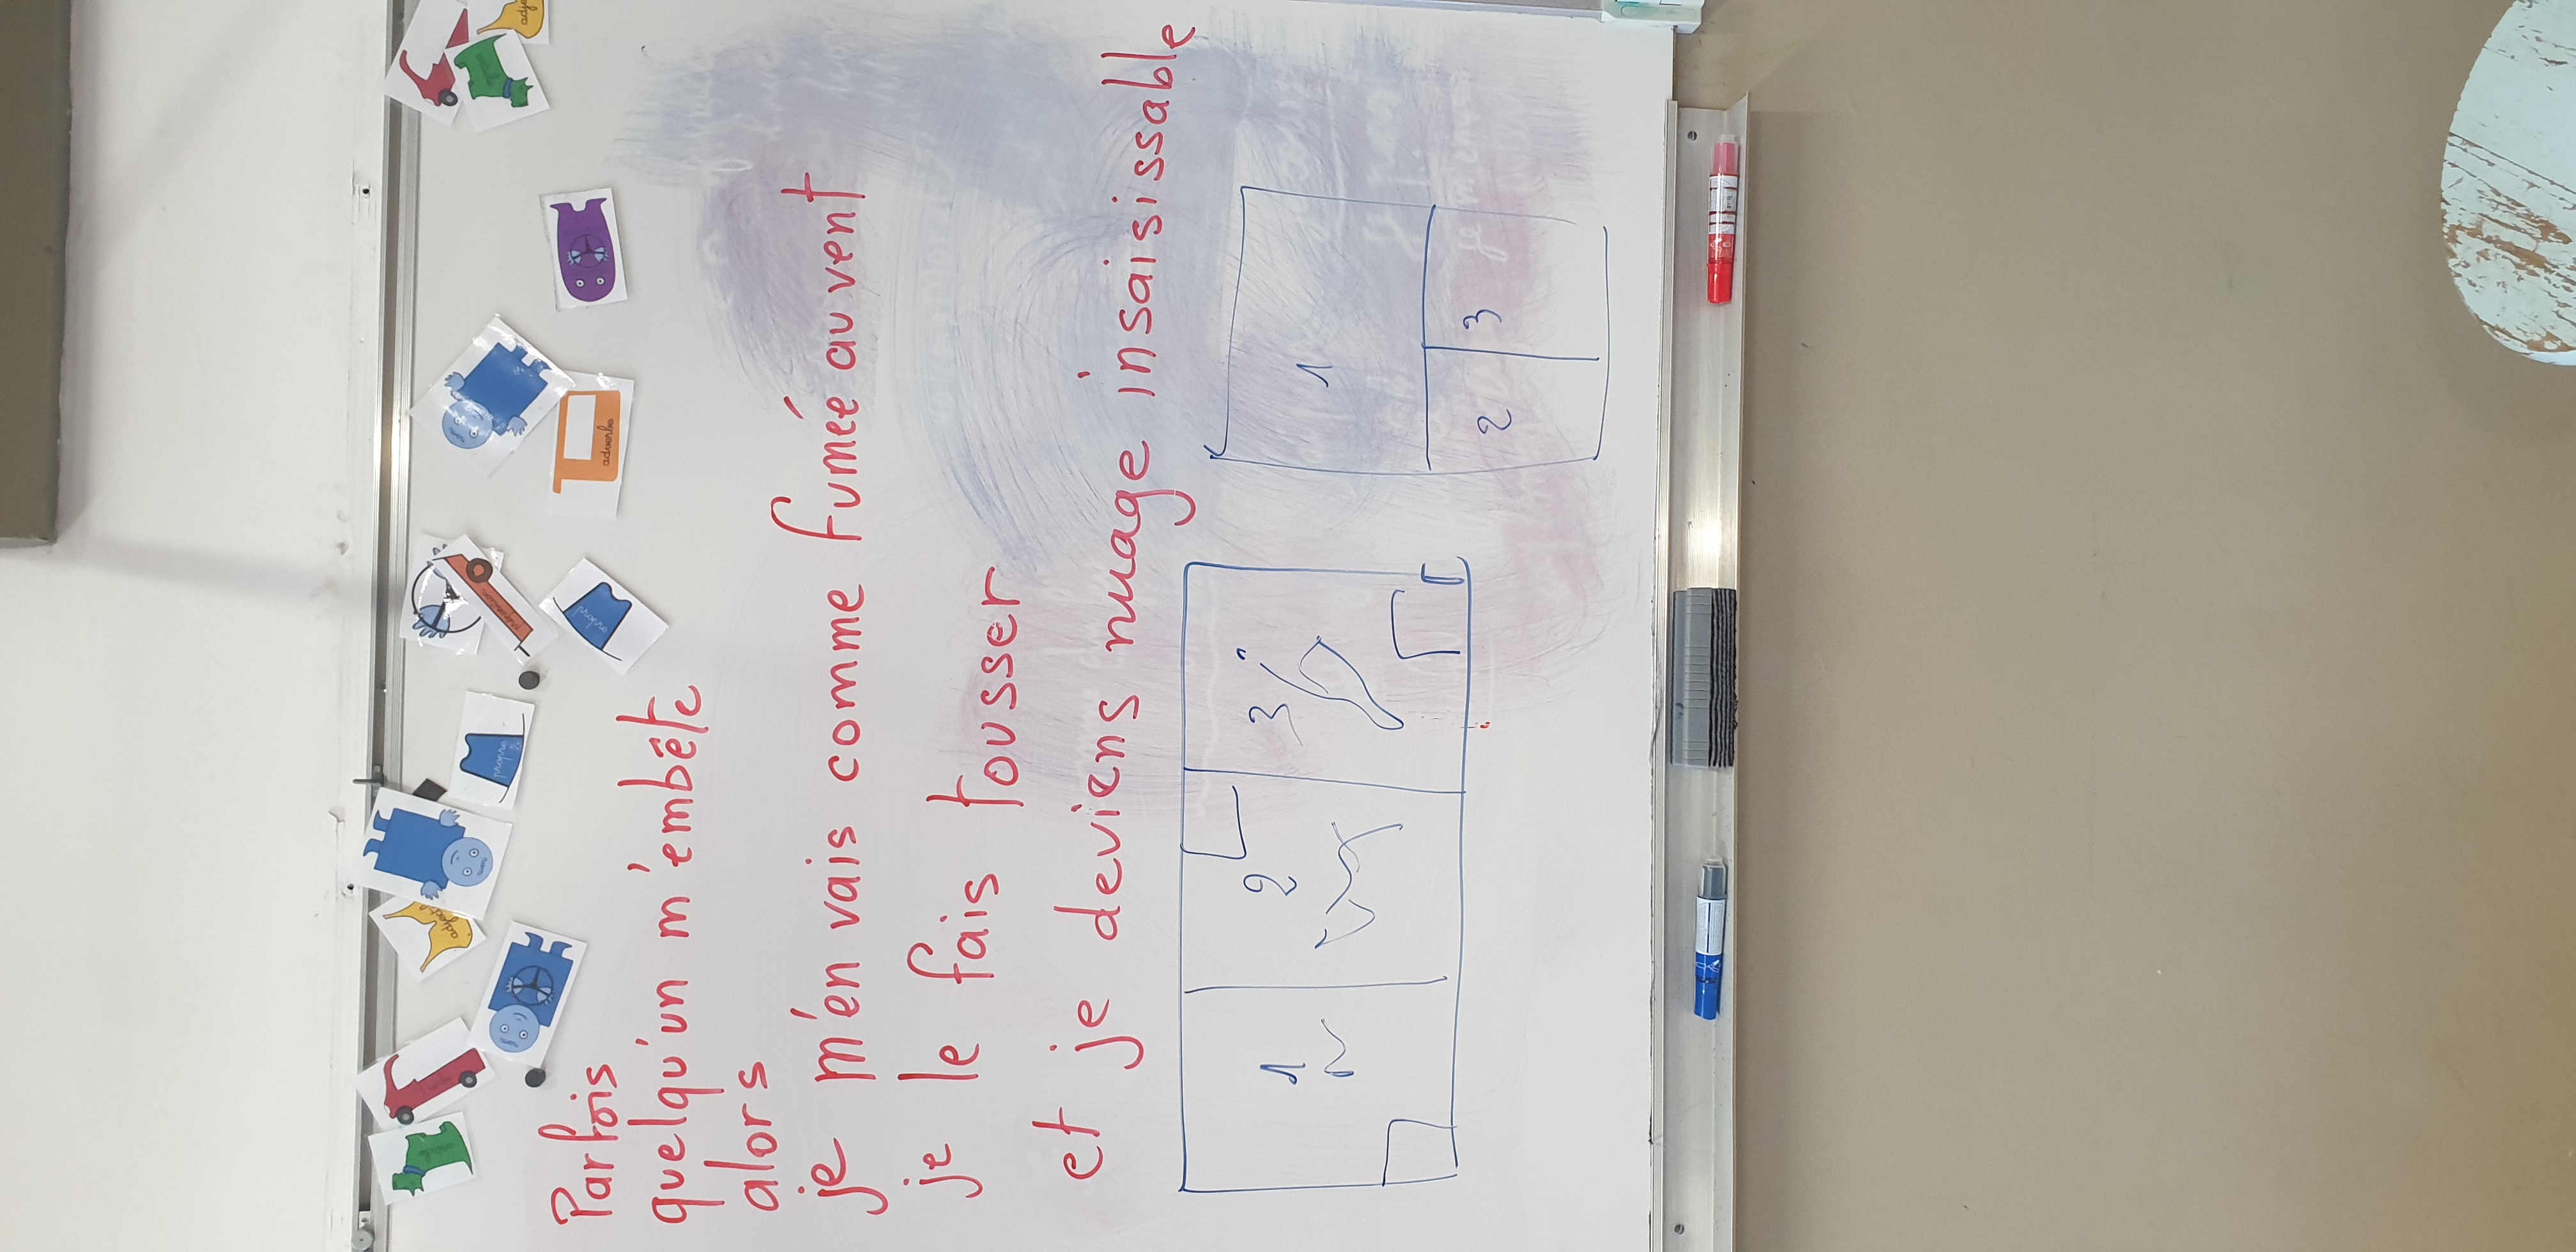 Parfois
quelqu'un m'embête
alors
je m'en vais comme fumée au vent
je le fais tousser
et je deviens nuage insaisissable
1
2
3
1
2
3
adverbe
propre
propre